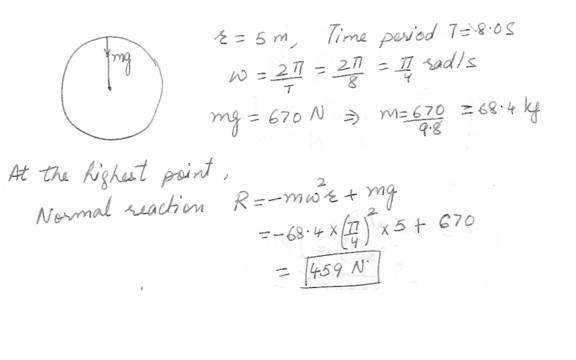 r = 5 m, Time period T = 8.0 s
mg
ω = 2π/T = 2π/8 = π/4 rad/s
mg = 670 N ⇒ m = 670/9.8 = 68.4 kg
At the highest point,
Normal reaction R = -mω²r + mg
= -68.4 × (π/4)² × 5 + 670
= 459 N